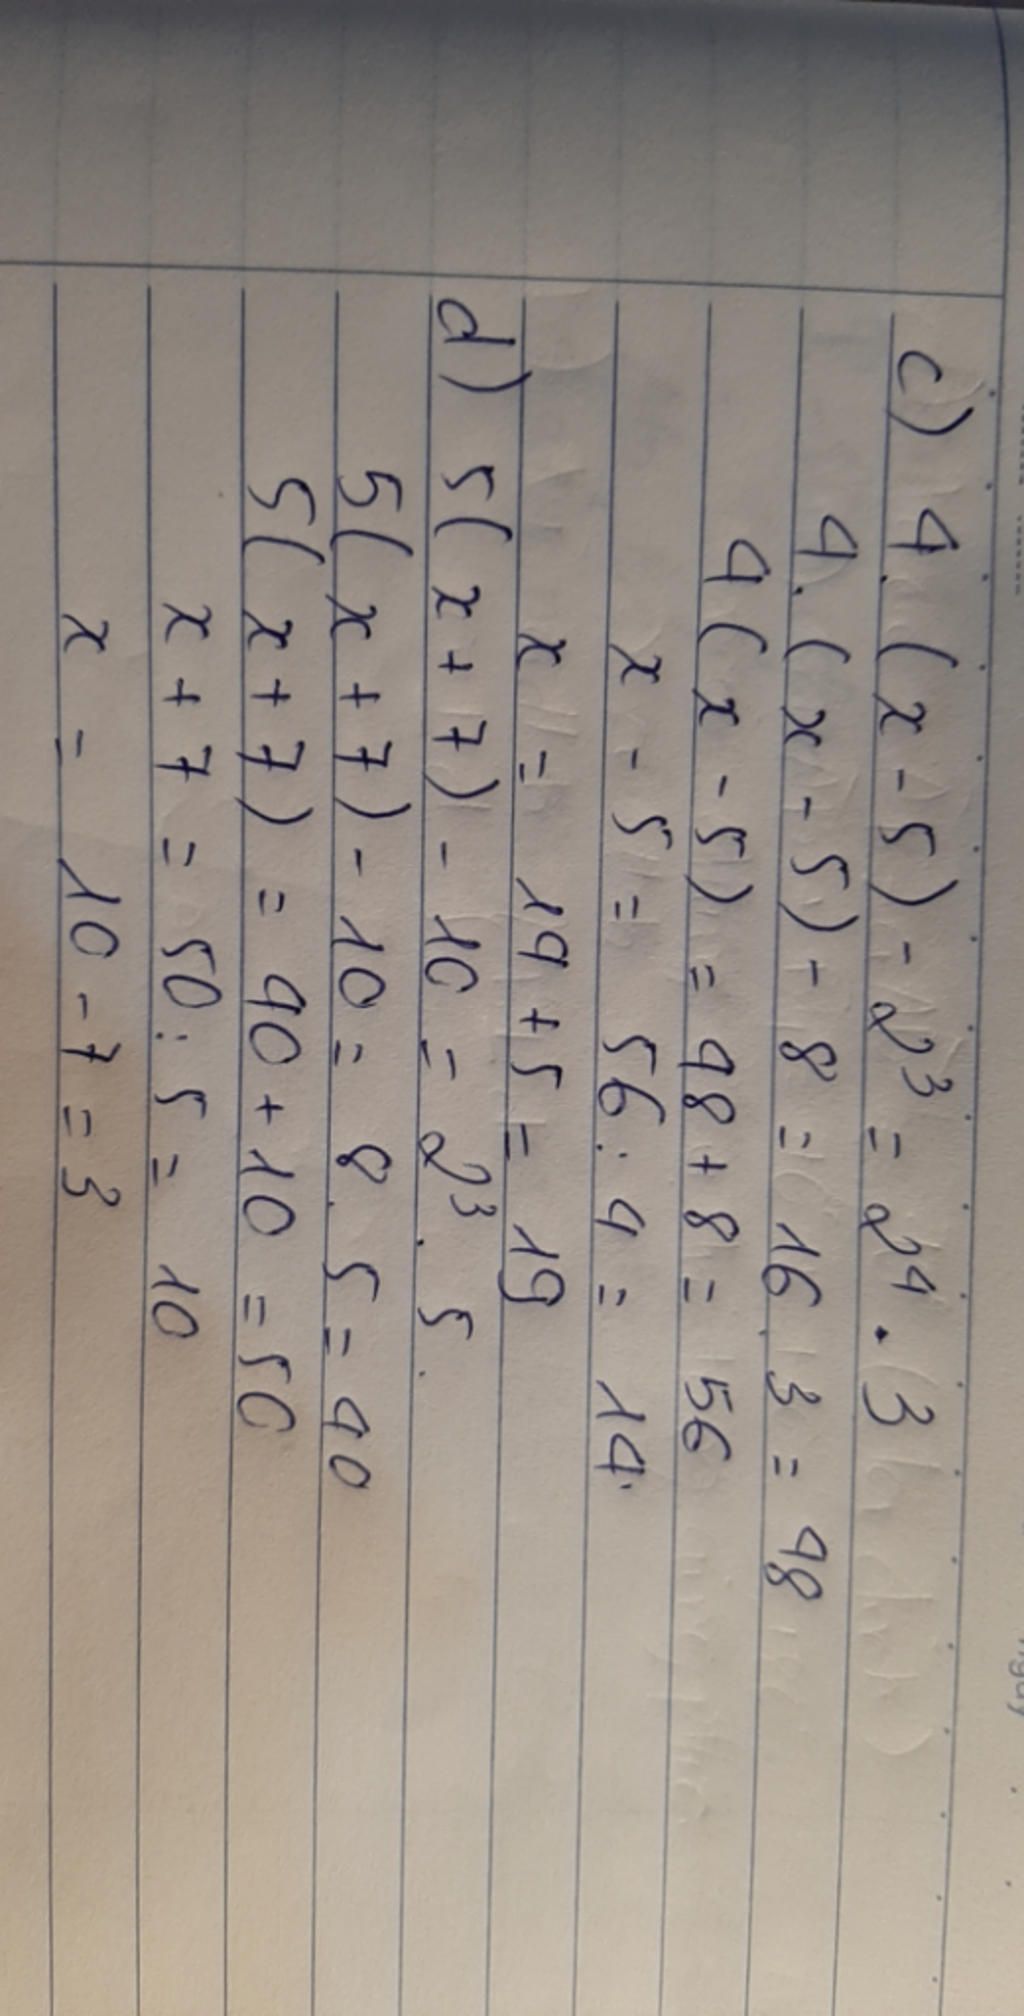 c) 4.(x-5)-2³ = 2⁴.3
4.(x-5)-8 = 16.3 = 48
4(x-5) = 48+8 = 56
x-5 = 56:4 = 14.
x = 14+5 = 19
d) 5(x+7)-10 = 2³.5.
5(x+7)-10 = 8.5 = 40
5(x+7) = 40+10 = 50
x+7 = 50:5 = 10
x = 10-7 = 3